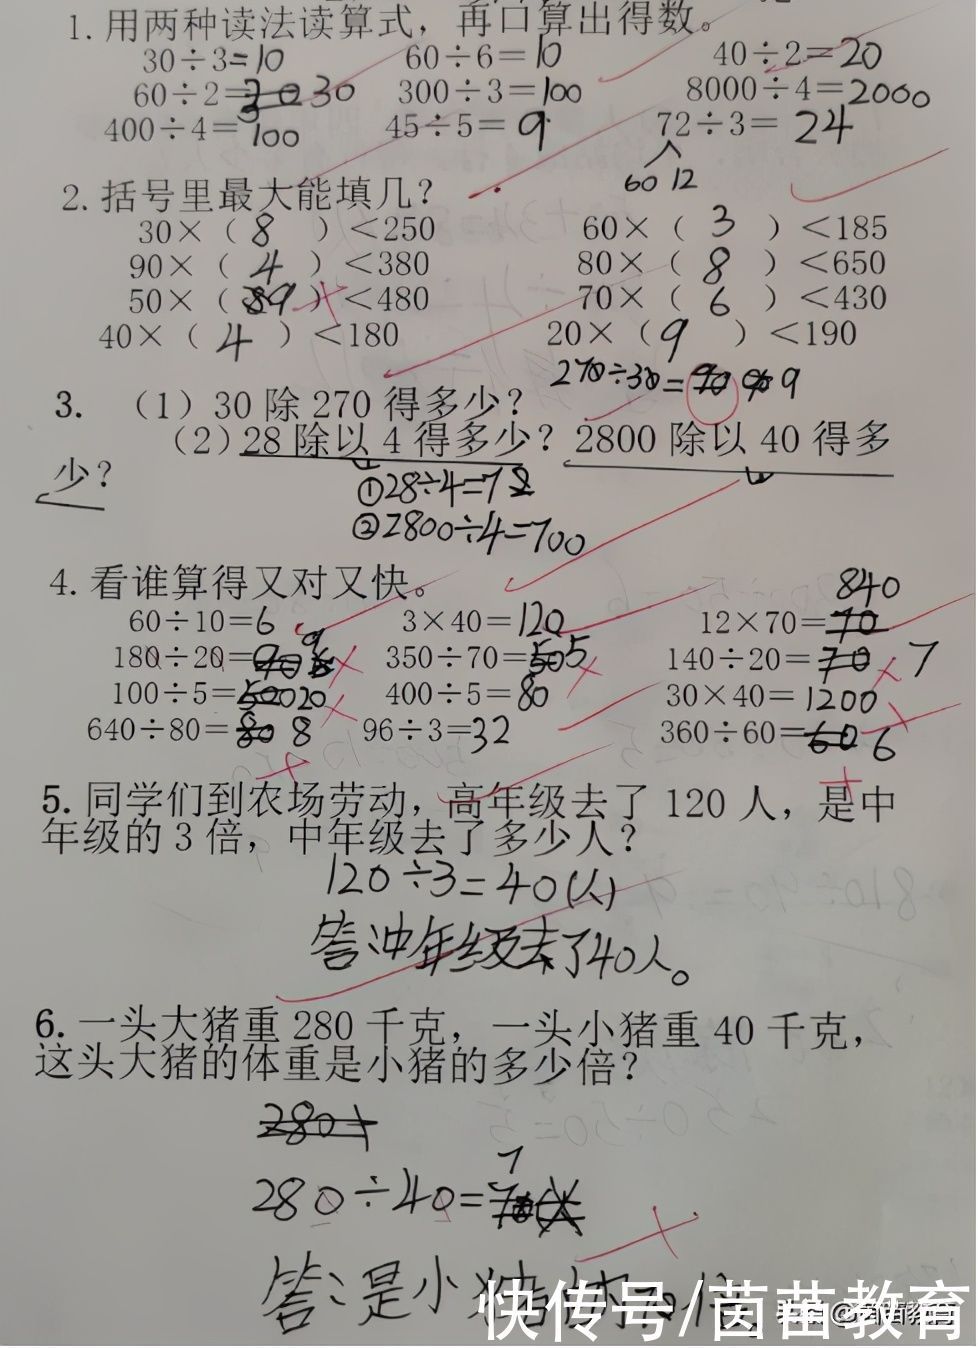 1. 用两种读法读算式，再口算出得数。
30÷3=10 60÷6=10 40÷2=20
60÷2=30 300÷3=100 8000÷4=2000
400÷4=100 45÷5=9 72÷3=24
60 12
2. 括号里最大能填几？
30×（8）<250 60×（3）<185
90×（4）<380 80×（8）<650
50×（89）<480 70×（6）<430
40×（4）<180 20×（9）<190
270÷30=9
3. （1）30 除 270 得多少？
（2）28 除以 4 得多少？2800 除以 40 得多
少？
①28÷4=7
②2800÷4=700
4. 看谁算得又对又快。
840
60÷10=6 3×40=120 12×70=70
9
180÷20= 350÷70=505 140÷20=70 7
100÷5=50020 400÷5=80 30×40=1200
640÷80=80 8 96÷3=32 360÷60=60 6
5. 同学们到农场劳动，高年级去了 120 人，是中
年级的 3 倍，中年级去了多少人？
120÷3=40(人)
答:中年级去了40人。
6. 一头大猪重 280 千克，一头小猪重 40 千克，
这头大猪的体重是小猪的多少倍？
280÷
7
280÷40=
答:是小猪的
快传号/茵苗教育
头条 @茵苗教育